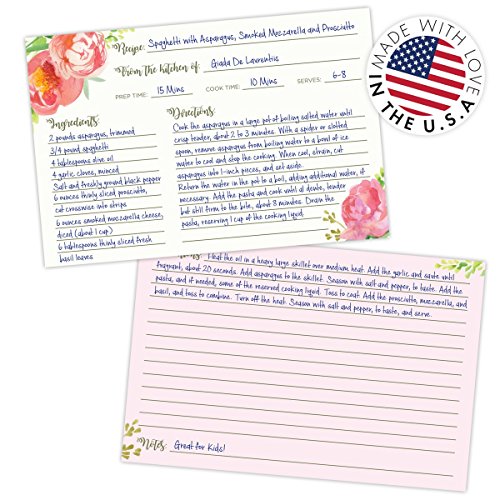 Recipe: Spaghetti with Asparagus, Smoked Mozzarella and Prosciutto
From the kitchen of: Giada De Laurentiis
PREP TIME: 15 Mins COOK TIME: 10 Mins SERVES: 6-8
Ingredients:
2 pounds asparagus, trimmed
3/4 pound spaghetti
4 tablespoons olive oil
4 garlic, cloves, minced
Salt and freshly ground black pepper
6 ounces thinly sliced prosciutto,
cut crosswise into strips
6 ounces smoked mozzarella cheese,
diced (about 1 cup)
6 tablespoons thinly sliced fresh
basil leaves
Directions:
Cook the asparagus in a large pot of boiling salted water until
crisp tender, about 2 to 3 minutes. With a spider or slotted
spoon, remove asparagus from boiling water to a bowl of ice
water to cool and stop the cooking. When cool, strain, cut
asparagus into 1-inch pieces, and set aside.
Return the water in the pot to a boil, adding additional water, if
necessary. Add the pasta and cook until al dente, tender
but still firm to the bite, about 8 minutes. Drain the
pasta, reserving 1 cup of the cooking liquid.
MADE WITH LOVE
IN THE U.S.A
Heat the oil in a heavy large skillet over medium heat. Add the garlic and saute until
fragrant, about 20 seconds. Add asparagus to the skillet. Season with salt and pepper, to taste. Add the
pasta, and if needed, some of the reserved cooking liquid. Toss to coat. Add the prosciutto, mozzarella, and
basil, and toss to combine. Turn off the heat. Season with salt and pepper, to taste, and serve.
Notes: Great for Kids!